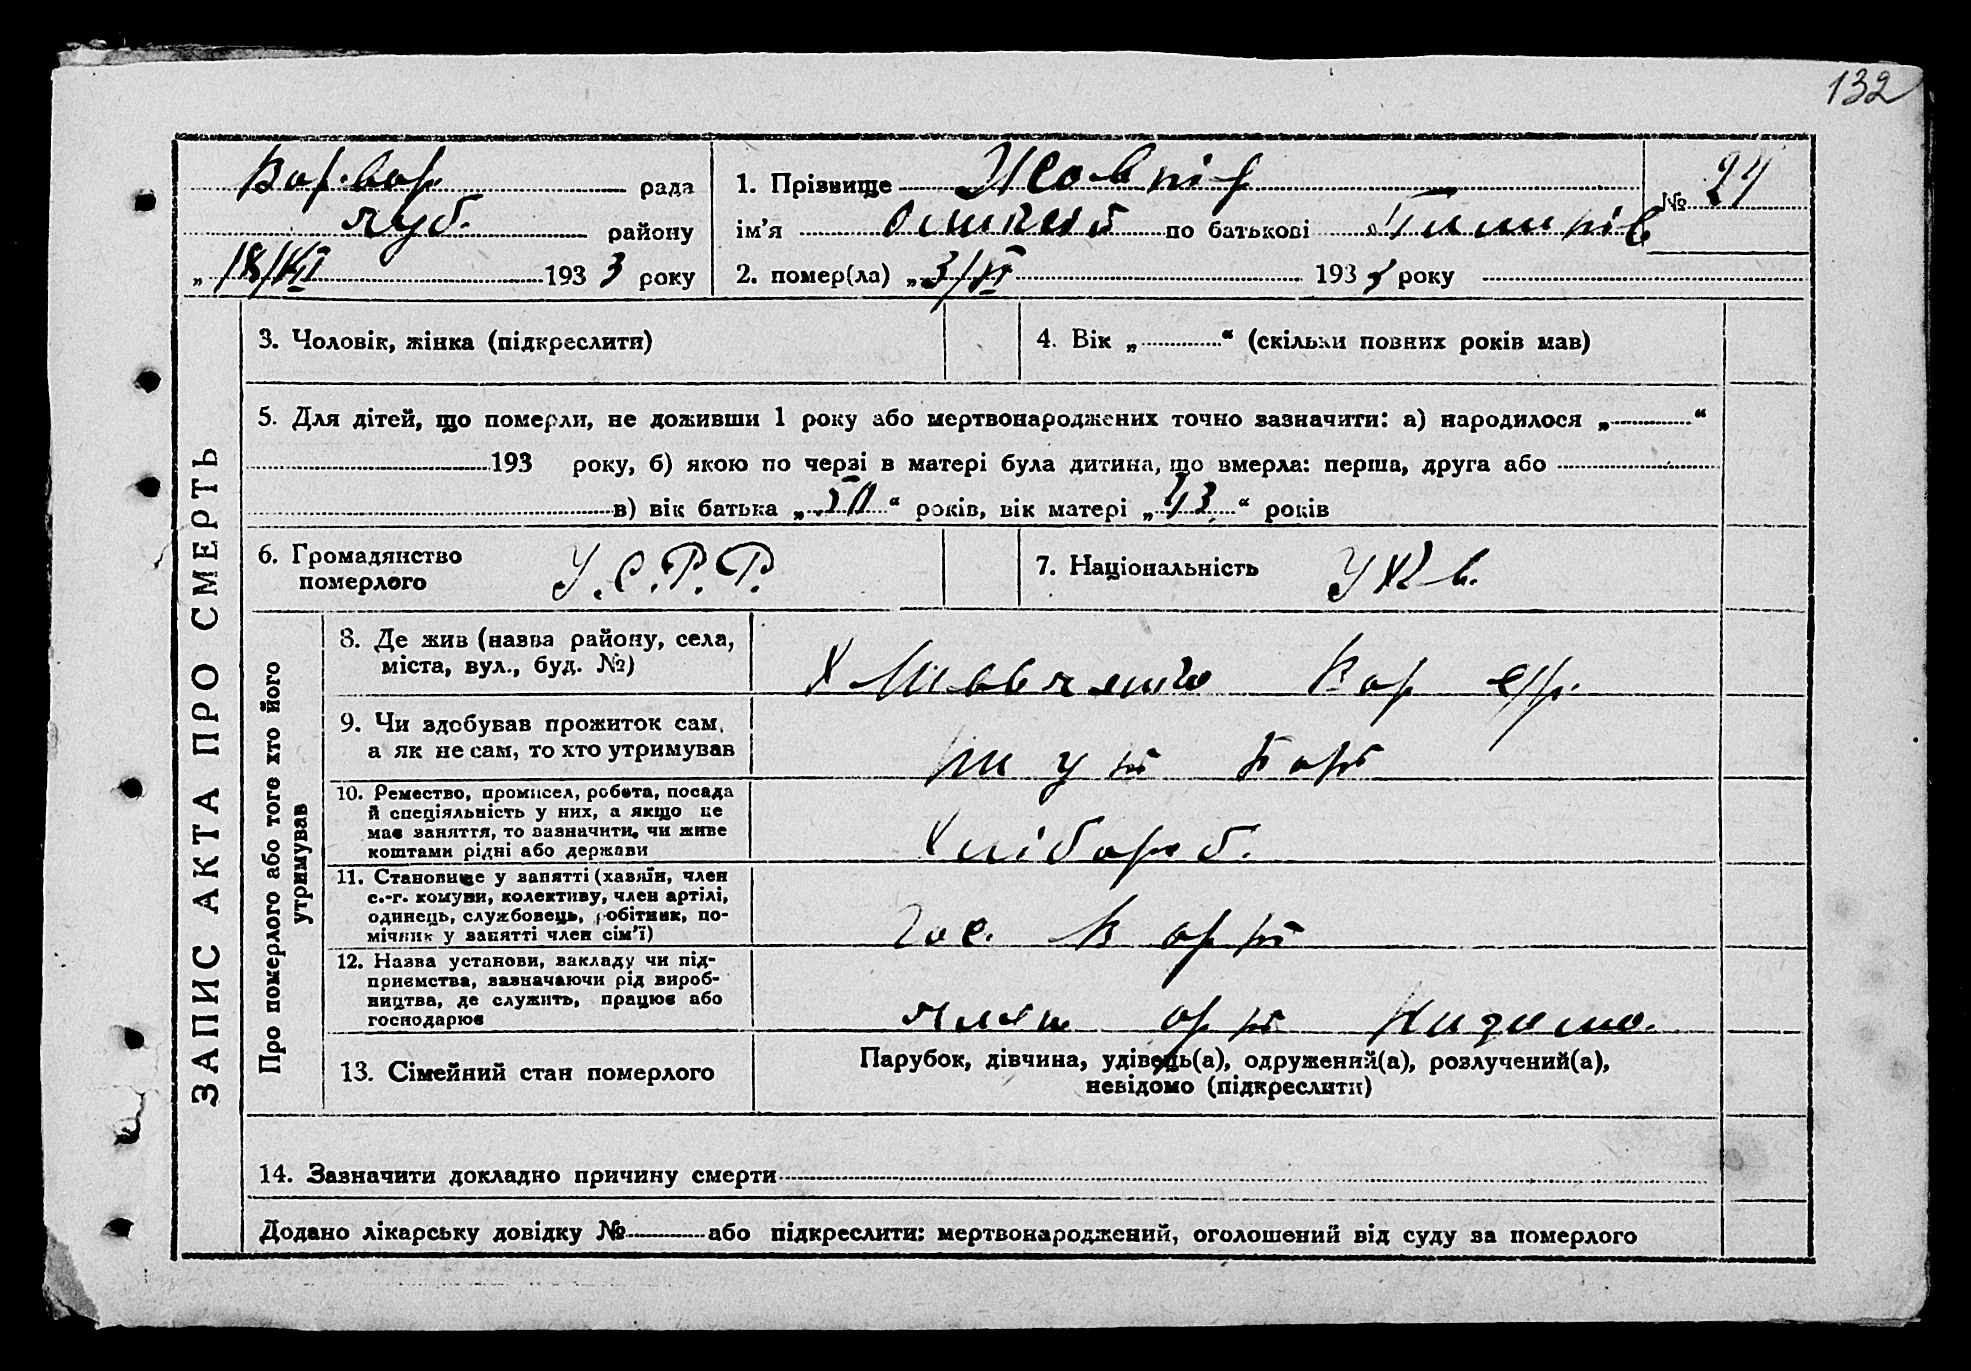 132
Вар. вар. рада
луб. району
„ 18/VI 1933 року
1. Прізвище Жовнір
№ 24
ім’я Олексій по батькові
2. помер(ла) „ 3/VI 1933 року
ЗАПИС АКТА ПРО СМЕРТЬ
3. Чоловік, жінка (підкреслити)
4. Вік „ “ (скільки повних років мав)
5. Для дітей, що померли, не доживши 1 року або мертвонароджених точно зазначити: а) народилося „ “
193 року, б) якою по черзі в матері була дитина, що вмерла: перша, друга або
в) вік батька „ “ років, вік матері „43“ років
6. Громадянство
померлого
У.С.Р.Р.
7. Національність Укр.
Про померлого або того хто його
утримував
8. Де жив (назва району, села,
міста, вул., буд. №)
Х Вар
9. Чи здобував прожиток сам,
а як не сам, то хто утримував
10. Ремество, промисел, робота, посада
й спеціяльність у них, а якщо не
має заняття, то зазначити, чи живе
коштами рідні або держави
Хлібороб.
11. Становище у занятті (хазяїн, член
с.-г. комуни, колективу, член артілі,
одинець, службовець, робітник, по-
мічник у занятті член сім’ї)
12. Назва установи, закладу чи під-
приємства, зазначаючи рід вироб-
ництва, де служить, працює або
господарює
член
13. Сімейний стан померлого
Парубок, дівчина, удівець(а), одружений(а), розлучений(а),
невідомо (підкреслити)
14. Зазначити докладно причину смерти
Додано лікарську довідку № або підкреслити: мертвонароджений, оголошений від суду за померлого